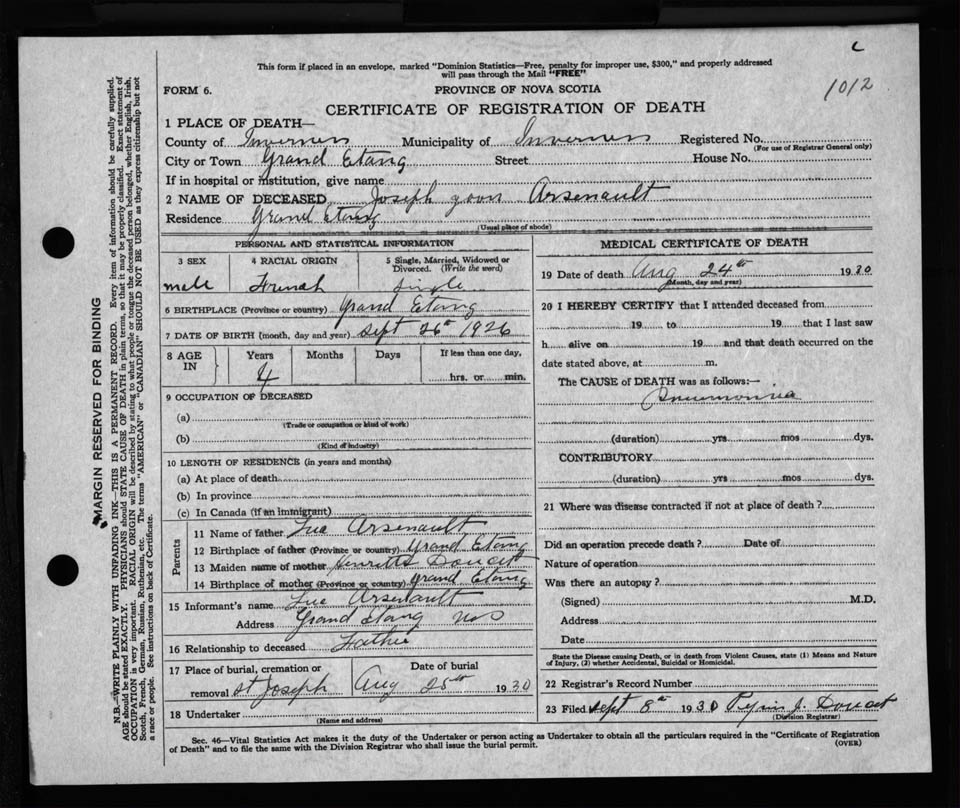 c
This form if placed in an envelope, marked "Dominion Statistics—Free, penalty for improper use, $300," and properly addressed
will pass through the Mail "FREE"
1012
FORM 6.
PROVINCE OF NOVA SCOTIA
CERTIFICATE OF REGISTRATION OF DEATH
1 PLACE OF DEATH—
County of Inverness Municipality of Inverness Registered No.
(For use of Registrar General only)
City or Town Grand Etang Street House No.
If in hospital or institution, give name
2 NAME OF DECEASED Joseph Arsenault
Residence Grand Etang
(Usual place of abode)
PERSONAL AND STATISTICAL INFORMATION
3 SEX
4 RACIAL ORIGIN
5 Single, Married, Widowed or
Divorced. (Write the word)
male French Single
6 BIRTHPLACE (Province or country) Grand Etang
7 DATE OF BIRTH (month, day and year) Sept 26th 1926
8 AGE
IN
Years
Months
Days
If less than one day,
4
hrs. or min.
9 OCCUPATION OF DECEASED
(a)
(Trade or occupation or kind of work)
(b)
(Kind of industry)
10 LENGTH OF RESIDENCE (in years and months)
(a) At place of death
(b) In province
(c) In Canada (if an immigrant)
Parents
11 Name of father Luc Arsenault
12 Birthplace of father (Province or country) Grand Etang
13 Maiden name of mother Doucet
14 Birthplace of mother (Province or country) Grand Etang
15 Informant's name Luc Arsenault
Address Grand Etang N S
16 Relationship to deceased Father
17 Place of burial, cremation or
Date of burial
removal St Joseph Aug 25th 1930
18 Undertaker
(Name and address)
MEDICAL CERTIFICATE OF DEATH
19 Date of death Aug 24th 1930
(Month, day and year)
20 I HEREBY CERTIFY that I attended deceased from
19 to 19 that I last saw
h alive on 19 and that death occurred on the
date stated above, at m.
The CAUSE of DEATH was as follows:—
Pneumonia
(duration) yrs mos dys.
CONTRIBUTORY
(duration) yrs mos dys.
21 Where was disease contracted if not at place of death?
Did an operation precede death? Date of
Nature of operation
Was there an autopsy?
(Signed) M.D.
Address
Date
State the Disease causing Death, or in death from Violent Causes, state (1) Means and Nature
of Injury, (2) whether Accidental, Suicidal or Homicidal.
22 Registrar's Record Number
23 Filed Sept 8th 1930 J. Doucet
(Division Registrar)
Sec. 46—Vital Statistics Act makes it the duty of the Undertaker or person acting as Undertaker to obtain all the particulars required in the "Certificate of Registration
of Death" and to file the same with the Division Registrar who shall issue the burial permit.
(OVER)
MARGIN RESERVED FOR BINDING
N.B.—WRITE PLAINLY WITH UNFADING INK—THIS IS A PERMANENT RECORD. Every item of information should be carefully supplied.
AGE should be stated EXACTLY. PHYSICIANS should STATE CAUSE OF DEATH in plain terms, so that it may be properly classified. Exact statement of
OCCUPATION is very important. RACIAL ORIGIN will be described by stating to what people or tongue the deceased person belonged, whether English, Irish,
Scotch, French, German, Russian, Ruthenian, etc. The terms "AMERICAN" or "CANADIAN" SHOULD NOT BE USED as they express citizenship but not
a race or people. See instructions on back of Certificate.